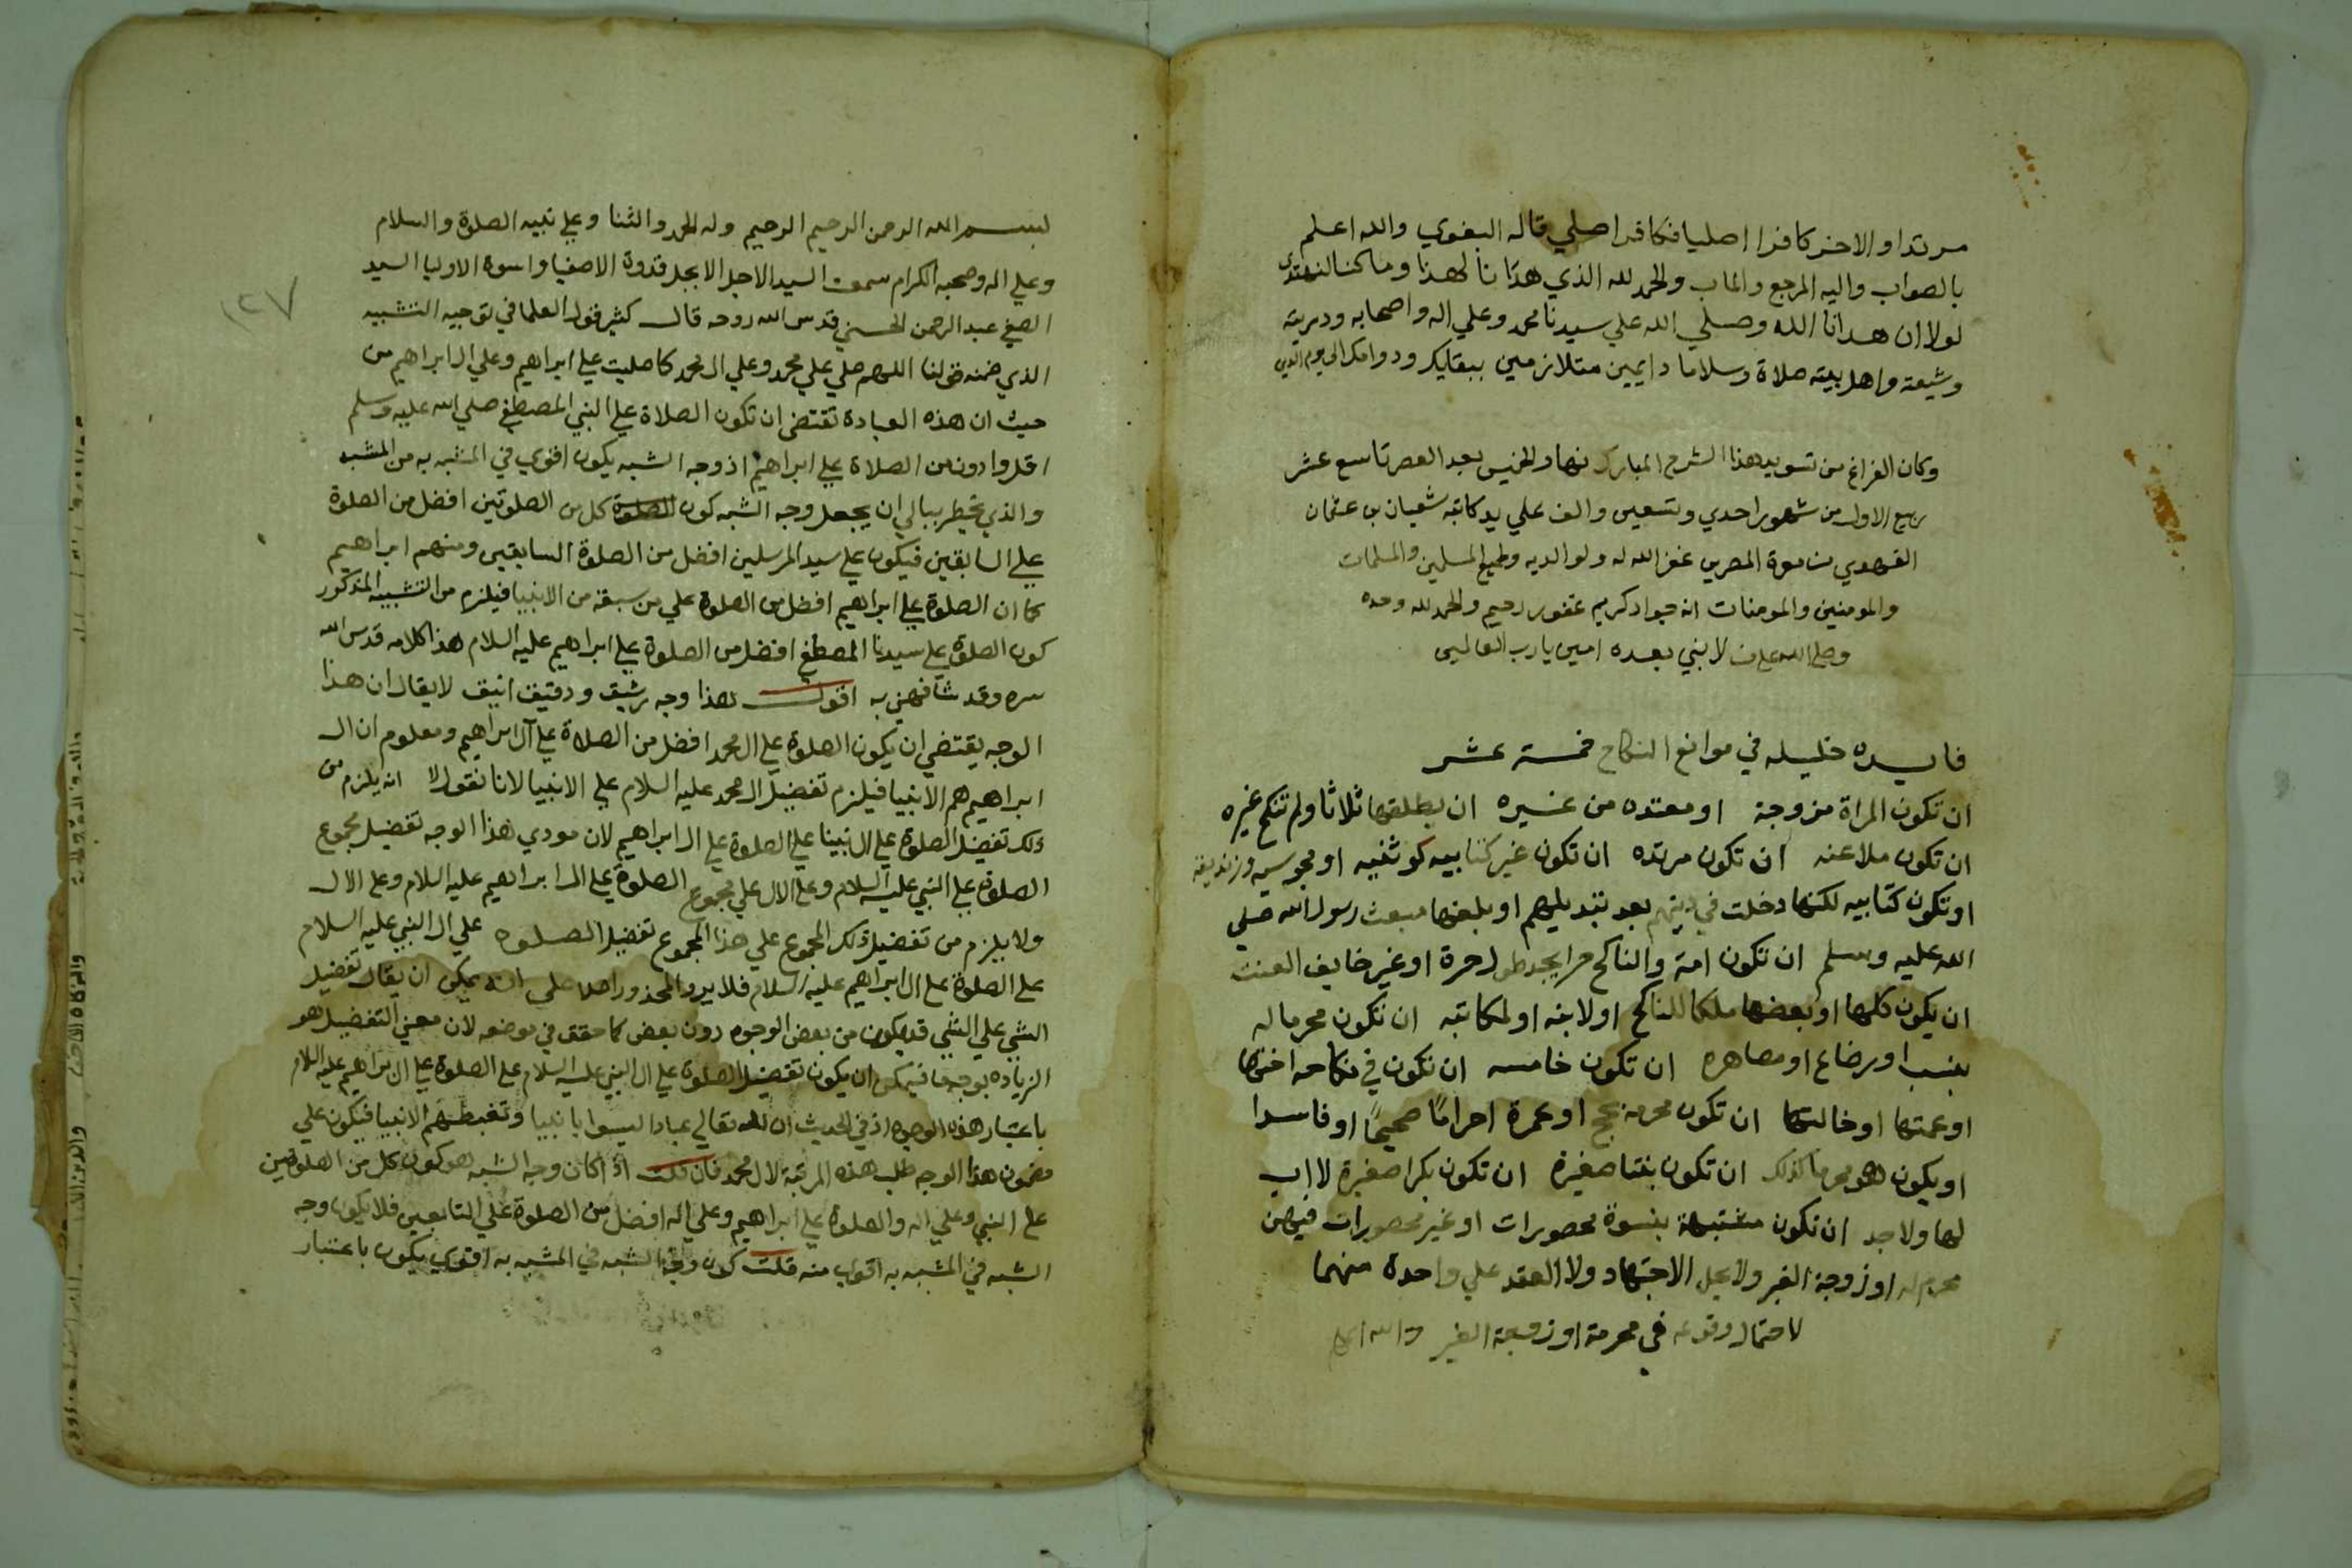 مرتدا والاخر كافرا اصليا فكافر اصلي قاله البغوي والله اعلم
بالصواب واليه المرجع والماب والحمد لله الذي هدانا لهذا وما كنا لنهتدي
لولا ان هدانا الله وصلي الله علي سيدنا محمد وعلي اله واصحابه وذريته
وشيعته واهل بيته صلاة وسلاما دايمين متلازمين ببقايك ودوامك الي يوم الدين
وكان الفراغ من تسويد هذا الشرح المبارك نهار الخميس بعد العصر تاسع عشر
ربيع الاول من شهور احدي وتسعين والف علي يد كاتبه شعبان بن عثمان
غفر الله له ولوالديه ولجميع المسلمين والمسلمات
والمومنين والمومنات انه جواد كريم غفور رحيم والحمد لله وحده
وصلي الله علي من لا نبي بعده امين يا رب العالمين
فايده جليله في موانع النكاح خمسة عشر
ان تكون المراة مزوجة او معتده من غيره ان يطلقها ثلاثا ولم تنكح غيره
ان تكون ملاعنه ان تكون مرتده ان تكون غير كتابيه كوثنيه او مجوسيه وزنديقه
او تكون كتابيه لكنها دخلت في دينهم بعد تبديلهم او بلغها مبعث رسول الله صلي
الله عليه وسلم ان تكون امة والناكح حرا يجد طول حرة او غير خايف العنت
ان يكون كلها او بعضها ملكا للناكح او لابنه او لمكاتبه ان تكون محرما له
بنسب او رضاع او مصاهره ان تكون خامسه ان تكون في نكاحه اختها
او عمتها او خالتها ان تكون محرمة بحج او عمرة احراما صحيحًا او فاسدا
او يكون هو محرما كذلك ان تكون بنتا صغيرة ان تكون بكرا صغيرة لا اب
لها ولا جد ان تكون مشتبهة بنسوة محصورات او غير محصورات فيهن
محرم له او زوجة الغير ولا يحل الاجتهاد ولا العقد علي واحدة منهما
لاحتمال وقوعه في محرمة او زوجة الغير والله اعلم
١٢٧
بسم الله الرحمن الرحيم الرحيم وله الحمد والثنا وعلي نبيه الصلوة والسلام
وعلي اله وصحبه الكرام سمعت السيد الاجل الابجل قدوة الاصفيا واسوة الاوليا السيد
الصفي عبد الرحمن الحسني قدس الله روحه قال كثير قول العلما في توجيه التشبيه
الذي ضمنه قولنا اللهم صلي علي محمد وعلي ال محمد كما صليت علي ابراهيم وعلي ال ابراهيم من
حيث ان هذه العبادة تقتضي ان تكون الصلاة علي النبي المصطفي صلي الله عليه وسلم
اقل وادون من الصلاة علي ابراهيم اذ وجه الشبه يكون اقوي في المشبه به من المشبه
والذي يخطر ببالي ان يجعل وجه الشبه كون كل من الصلوتين افضل من الصلوة
علي السابقين فيكون علي سيد المرسلين افضل من الصلوة السابقين ومنهم ابراهيم
كما ان الصلوة علي ابراهيم افضل من الصلوة علي من سبقه من الانبيا فيلزم من التشبيه المذكور
كون الصلوة علي سيدنا المصطفي افضل من الصلوة علي ابراهيم عليه السلام هذا كلامه قدس الله
سره وقد شافهني به اقول هذا وجه رشيق ودقيق انيق لا يقال ان هذا
الوجه يقتضي ان يكون الصلوة علي ال محمد افضل من الصلاة علي آل ابراهيم ومعلوم ان ال
ابراهيم هم الانبيا فيلزم تفضيل ال محمد عليه السلام علي الانبيا لانا نقول لا انه يلزم من
ذلك تفضيل الصلوة علي ال نبينا علي الصلوة علي ال ابراهيم لان مودي هذا الوجه تفضيل مجموع
الصلوة علي النبي عليه السلام وعلي الال علي مجموع الصلوة علي ال ابراهيم عليه السلام وعلي الال
ولا يلزم من تفضيل ذلك المجموع علي هذا المجموع تفضيل الصلوه علي ال النبي عليه السلام
علي الصلوة علي ال ابراهيم عليه السلام فلا يرد المحذور اصلا علي انه يمكن ان يقال تفضيل
الشي علي الشي قد يكون من بعض الوجوه دون بعض كما حقق في موضعه لان معني التفضيل هو
الزياده بوجه ما فيمكن ان يكون تفضيل الصلوة علي ال النبي عليه السلام علي الصلوة علي ال ابراهيم عليه السلام
باعتبار هذه الوجوه اذ في الحديث ان لله تعالي عبادا ليسوا بانبيا وتغبطهم الانبيا فيكون علي
مضمون هذا الوجه طلب هذه المرتبة لال محمد فان قلت اذا كان وجه الشبه هو كون كل من الصلوتين
علي النبي وعلي اله والصلوة علي ابراهيم وعلي اله افضل من الصلوة علي التابعين فلا يكون وجه
الشبه في المشبه به اقوي منه قلت كون وجه الشبه في المشبه به اقوي يكون باعتبار